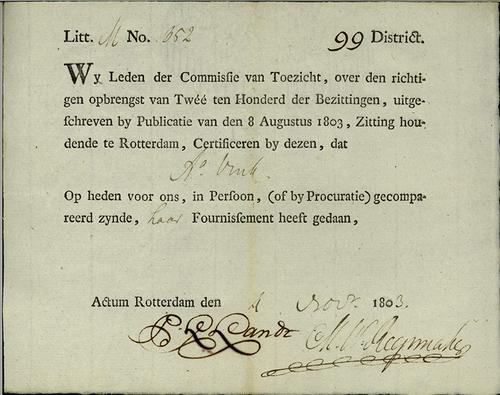 Litt. M No. 652 99 District.
Wy Leden der Commissie van Toezicht, over den richti-
gen opbrengst van Twéé ten Honderd der Bezittingen, uitge-
schreven by Publicatie van den 8 Augustus 1803, Zitting hou-
dende te Rotterdam, Certificeren by dezen, dat
Vink.
Op heden voor ons, in Persoon, (of by Procuratie) gecompa-
reerd zynde, haar Fournissement heeft gedaan,
Actum Rotterdam den Novr. 1803.